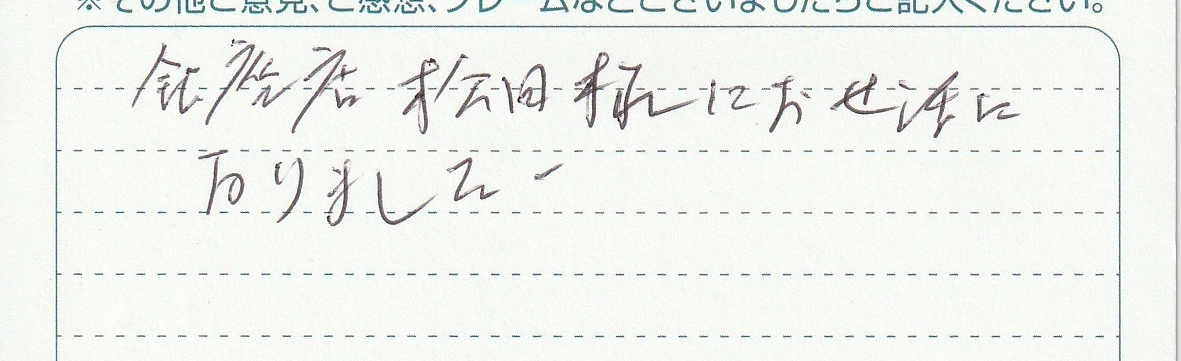 ※その他ご意見、ご感想、クレームなどございましたらご記入ください。
銀座店 松田様にお世話に
なりました。